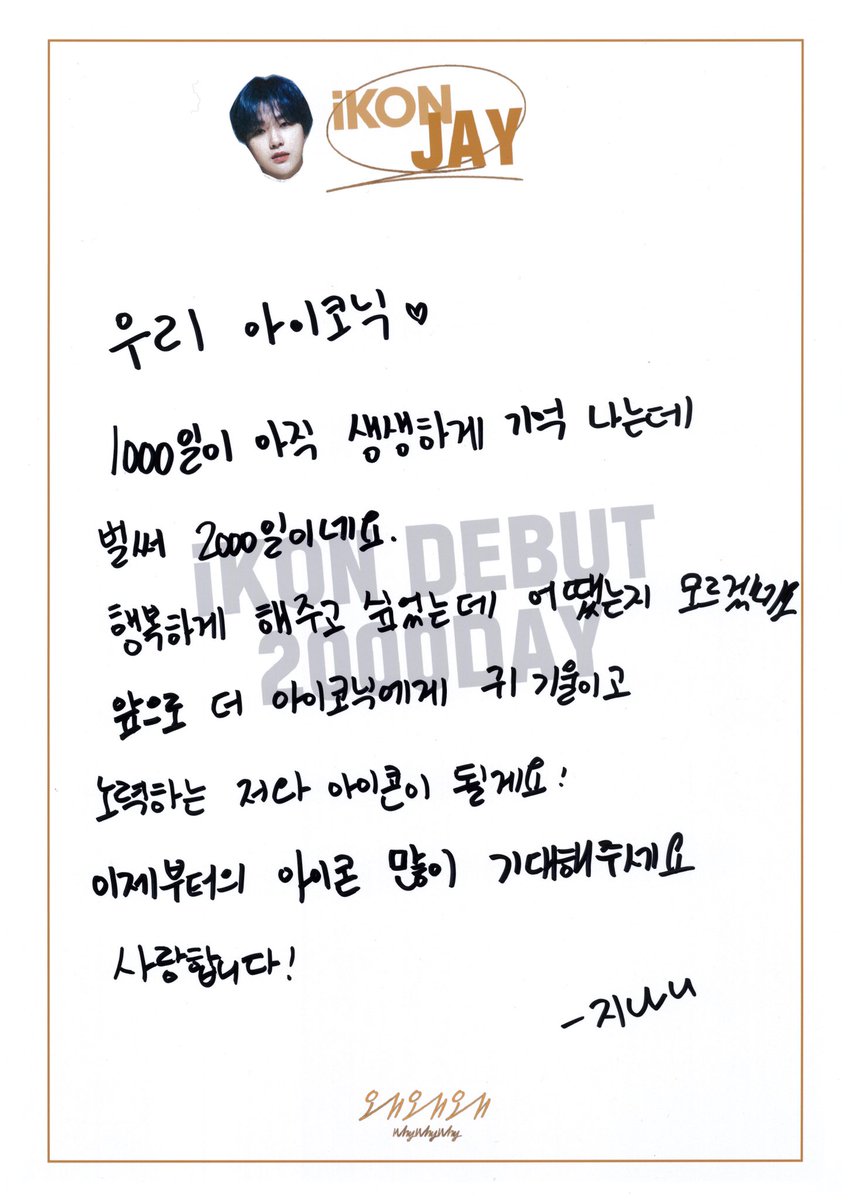 iKON
JAY
우리 아이코닉♡
1000일이 아직 생생하게 기억 나는데
벌써 2000일이네요.
iKON DEBUT
행복하게 해주고 싶었는데 어땠는지 모르겠네요
2000DAY
앞으로 더 아이코닉에게 귀 기울이고
노력하는 저와 아이콘이 될게요!
이제부터의 아이콘 많이 기대해주세요
사랑합니다!
-지나니
왜왜왜
Why Why Why